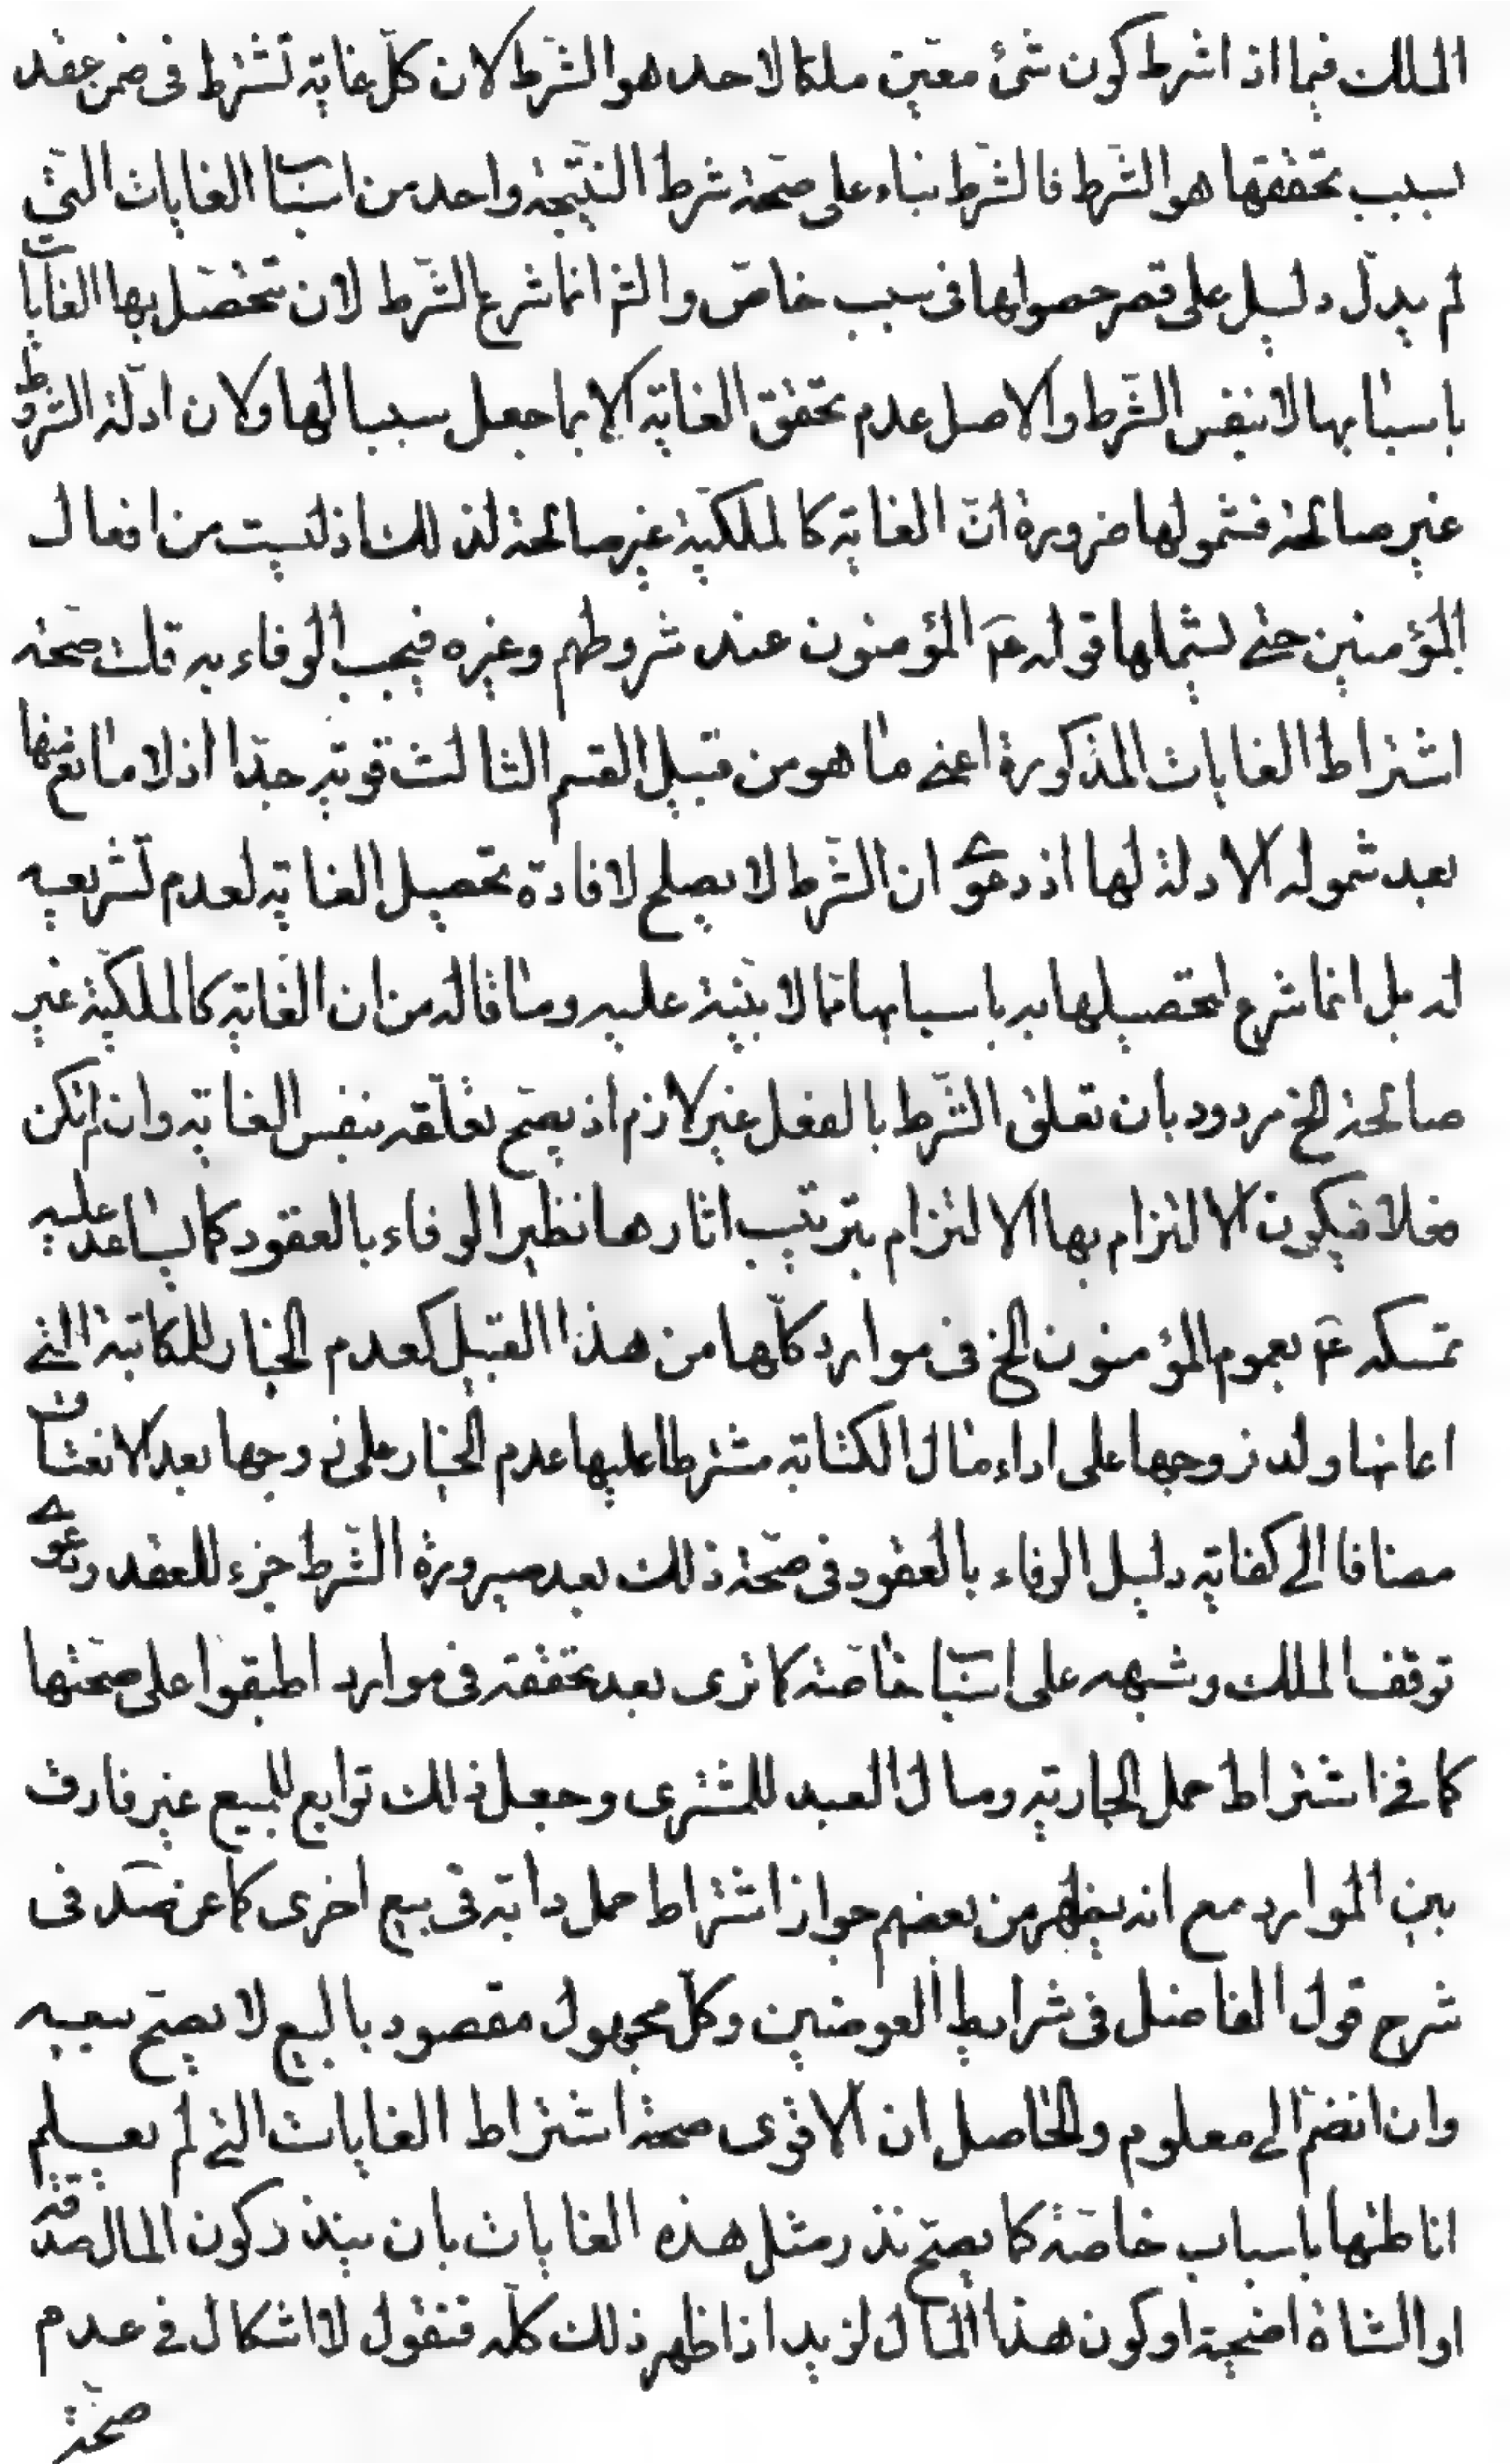 الملك فيما اذ اشرط كون شئ معين ملكا لاحد هو الشرط لان كل غاية تشترط فى ضمن عقد
سبب تحققها هو الشرط فالشرط بناء على صحة شرط النتيجة واحد من اسباب الغايات التي
لم يدل دليل على قصر حصولها فى سبب خاص و انما شرع الشرط لان تحصل بها الغايات
باسبابها لا بنفس الشرط والاصل عدم تحقق الغاية الا بما جعل سببا لها ولان ادلة الشروط
غير صالحة فشمولها ضرورة ان الغاية كالملكية غير صالحة لذلك اذ ليست من افعال
المؤمنين حتى يشملها قوله عم المؤمنون عند شروطهم وغيره فيجب الوفاء به قلت صحة
اشتراط الغايات المذكورة اعنى ما هو من قبيل القسم الثالث قوية جدا اذ لا مانع منها
بعد شموله الادلة لها اذ دعوى ان الشرط لا يصلح لافادة تحصيل الغاية لعدم تشريعيه
له بل انما شرع لتحصيلها به باسبابها مما لا بينة عليه وما قاله من ان الغاية كالملكية غير
صالحة الخ مردود بان تعلق الشرط بالفعل غير لازم اذ يصح تعلقه بنفس الغاية وان لم تكن
فعلا فيكون الالتزام بها الالتزام بترتيب اثارها نظير الوفاء بالعقود كما يساعد عليه
تمسكه عم بعموم المؤمنون الخ فى موارد كلها من هذا القبيل كعدم الخيار للمكاتبة التي
اعانها ولد زوجها على اداء مال الكتابة مشترطا عليها عدم الخيار على زوجها بعد الانعتاق
مضافا الى كفاية دليل الوفاء بالعقود فى صحة ذلك بعد صيرورة الشرط جزء للعقد ودعوى
توقف الملك وشبهه على اسباب خاصة كما ترى بعد تحققه فى موارد اطبقوا على صحتها
كما في اشتراط حمل الجارية ومال العبد للمشترى وجعل ذلك توابع للمبيع غير فارق
بين الموارد مع انه يظهر من بعضهم جواز اشتراط حمل دابة فى بيع اخرى كما عن فى
شرح قول الفاضل فى شرايط العوضين وكل مجهول مقصود بالبيع لا يصح بيعيه
وان انضم الى معلوم والحاصل ان الاقوى صحة اشتراط الغايات التي لم يعلم
اناطتها باسباب خاصة كما يصح نذر مثل هذه الغايات بان ينذر كون المال صدقة
او الشاة اضحية او كون هذا المال لزيد اذا ظهر ذلك كله فنقول لا اشكال في عدم
صحة